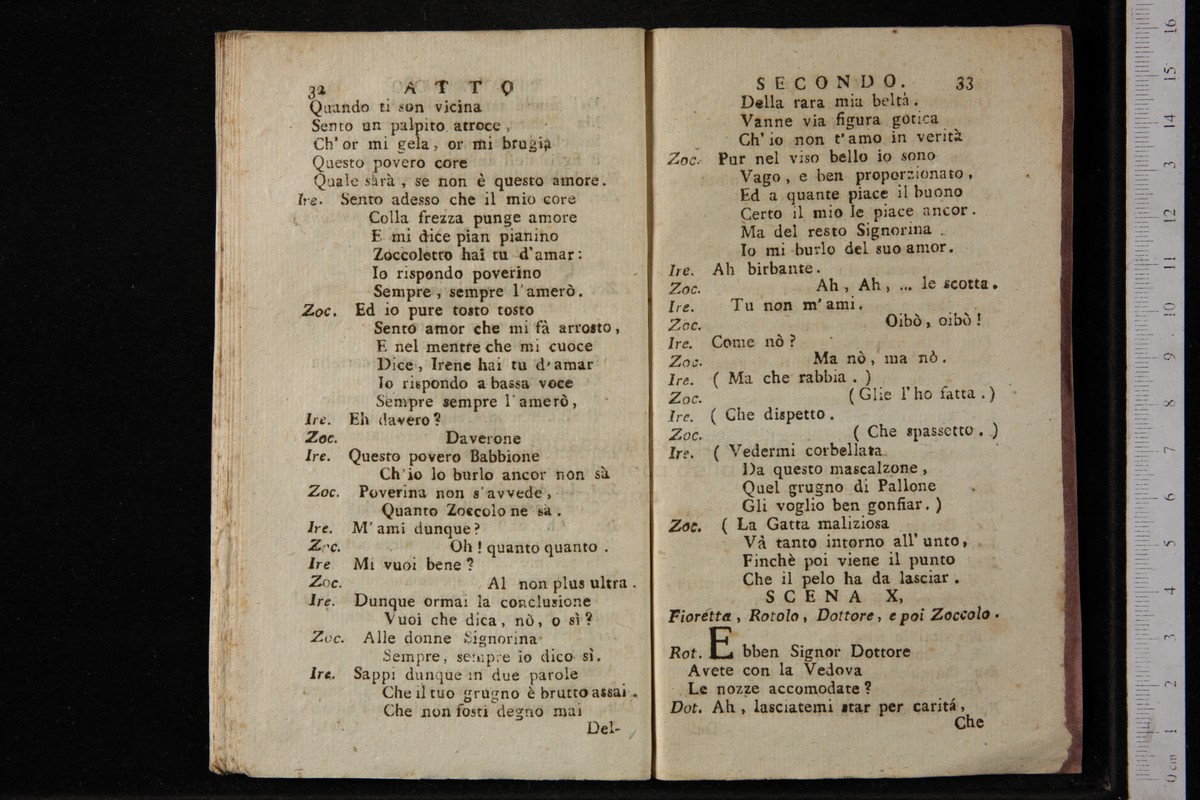 32 ATTO
Quando ti son vicina
Sento un palpito atroce,
Ch' or mi gela, or mi brugia
Questo povero core
Quale sarà, se non è questo amore.
Ire. Sento adesso che il mio core
Colla frezza punge amore
E mi dice pian pianino
Zoccoletto hai tu d'amar:
Io rispondo poverino
Sempre, sempre l'amerò.
Zoc. Ed io pure tosto tosto
Sento amor che mi fà arrosto,
E nel mentre che mi cuoce
Dice, Irene hai tu d'amar
Io rispondo a bassa voce
Sempre sempre l'amerò,
Ire. Eh davero?
Zoc. Daverone
Ire. Questo povero Babbione
Ch'io lo burlo ancor non sà
Zoc. Poverina non s'avvede,
Quanto Zoccolo ne sa.
Ire. M'ami dunque?
Zoc. Oh! quanto quanto.
Ire Mi vuoi bene?
Zoc. Al non plus ultra.
Ire. Dunque ormai la conclusione
Vuoi che dica, nò, o sì?
Zoc. Alle donne Signorina
Sempre, sempre io dico sì.
Ire. Sappi dunque in due parole
Che il tuo grugno è brutto assai.
Che non fosti degno mai
Del-
SECONDO. 33
Della rara mia beltá.
Vanne via figura gotica
Ch' io non t'amo in verità
Zoc. Pur nel viso bello io sono
Vago, e ben proporzionato,
Ed a quante piace il buono
Certo il mio le piace ancor.
Ma del resto Signorina.
Io mi burlo del suo amor.
Ire. Ah birbante.
Zoc. Ah, Ah, ... le scotta.
Ire. Tu non m'ami.
Zoc. Oibò, oibò!
Ire. Come nò?
Zoc. Ma nò, ma nò.
Ire. ( Ma che rabbia. )
Zoc. ( Glie l'ho fatta. )
Ire. ( Che dispetto.
Zoc. ( Che spassetto. )
Ire. ( Vedermi corbellata
Da questo mascalzone,
Quel grugno di Pallone
Gli voglio ben gonfiar. )
Zoc. ( La Gatta maliziosa
Và tanto intorno all' unto,
Finchè poi viene il punto
Che il pelo ha da lasciar.
SCENA X,
Fiorétta, Rotolo, Dottore, e poi Zoccolo.
Rot. Ebben Signor Dottore
Avete con la Vedova
Le nozze accomodate?
Dot. Ah, lasciatemi star per caritá,
Che
0 cm 1 2 3 4 5 6 7 8 9 10 11 12 13 14 15 16